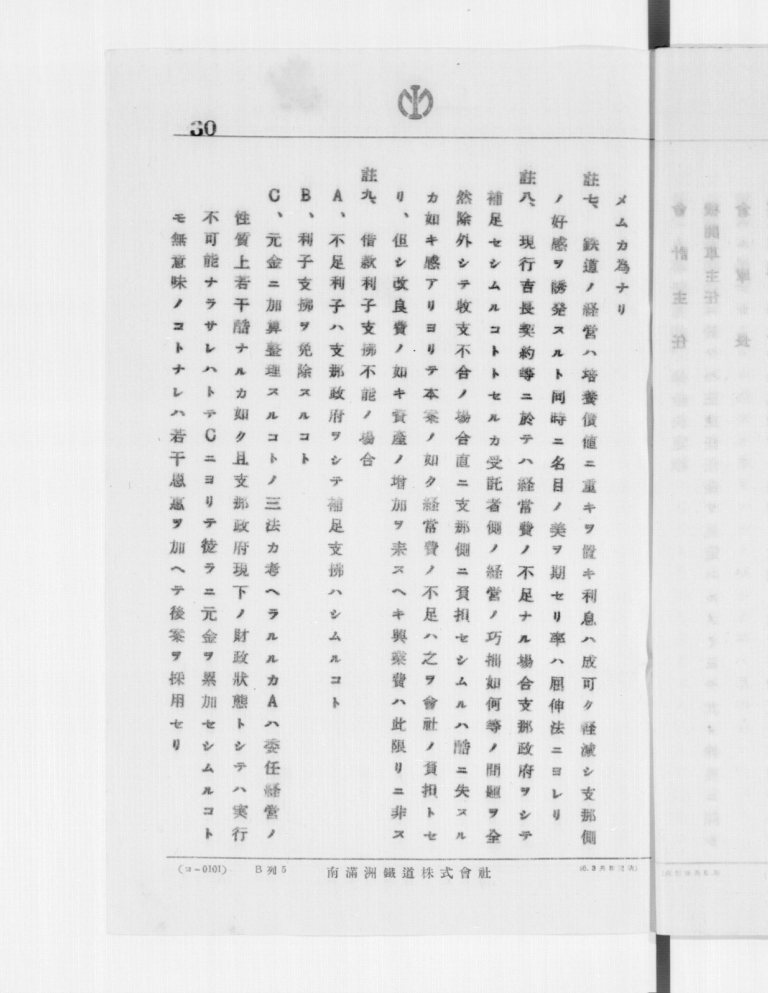 30
メムカ為ナリ
註七、鉄道ノ経営ハ培養価値ニ重キヲ置キ利息ハ成可ク軽減シ支那側
ノ好感ヲ誘発スルト同時ニ名目ノ美ヲ期セリ率ハ屈伸法ニヨレリ
註八、現行吉長契約等ニ於テハ経常費ノ不足ナル場合支那政府ヲシテ
補足セシムルコトトセルカ受託者側ノ経営ノ巧拙如何等ノ問題ヲ全
然除外シテ收支不合ノ場合直ニ支那側ニ負担セシムルハ酷ニ失スル
カ如キ感アリヨリテ本案ノ如ク経常費ノ不足ハ之ヲ會社ノ負担トセ
リ、但シ改良費ノ如キ資産ノ増加ヲ来スヘキ興業費ハ此限リニ非ス
註九、借款利子支拂不能ノ場合
A、不足利子ハ支那政府ヲシテ補足支拂ハシムルコト
B、利子支拂ヲ免除スルコト
C、元金ニ加算整理スルコトノ三法カ考ヘラルルカAハ委任経営ノ
性質上若干酷ナルカ如ク且支那政府現下ノ財政狀態トシテハ実行
不可能ナラサレハトテCニヨリテ徒ラニ元金ヲ累加セシムルコト
モ無意味ノコトナレハ若干恩惠ヲ加ヘテ後案ヲ採用セリ
(ヨ－0101) B列5 南滿洲鐵道株式會社
會計主任
機關車主任
會庫長